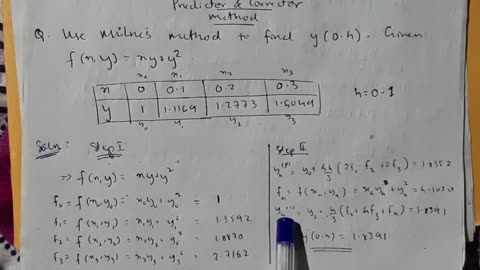 Predictor & Corrector
method
Q. Use Milne's method to find y(0.4). Given
f(x,y) = xy+y²
x₀ x₁ x₂ x₃
x 0 0.1 0.2 0.3
y 1 1.1169 1.2773 1.5049
y₀ y₁ y₂ y₃
h=0.1
Soln: Step I
⇒ f(x,y) = xy+y²
f₀ = f(x,y) = x₀y₀+y₀² = 1
f₁ = f(x,y) = x₁y₁+y₁² = 1.3592
f₂ = f(x,y) = x₂y₂+y₂² = 1.8870
f₃ = f(x,y) = x₃y₃+y₃² = 2.7162
Step II
y₄⁽ᵖ⁾ = y₀+4h/3 (2f₁-f₂+2f₃) = 1.8352
f₄ = f(x₄,y₄) = x₄y₄+y₄² =
y₄⁽ᶜ⁾ = y₂+h/3 (f₂+4f₃+f₄) = 1.8391
y(0.4) = 1.8391